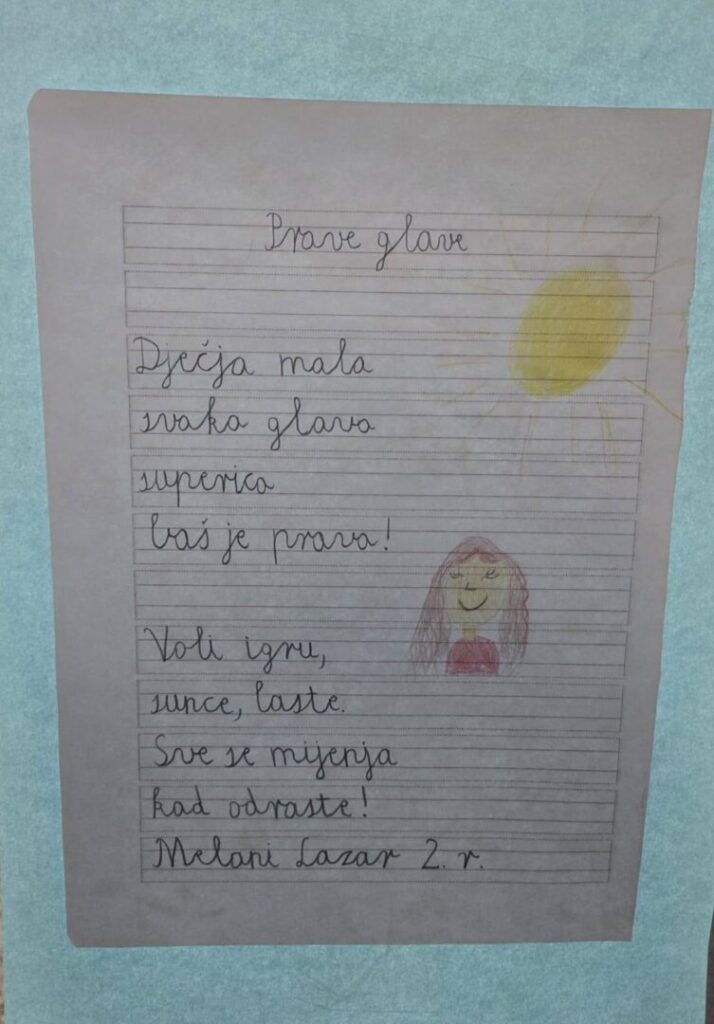 Prave glave
Dječja mala
svaka glava
superica
baš je prava!
Voli igru,
sunce, laste.
Sve se mijenja
kad odraste!
Melani Lazar 2. r.